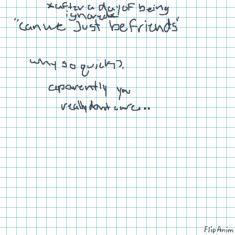 *after a day of being
ignored*
"can we just be friends"
why so quick?.
apparently you
really dont care...
FlipAnim